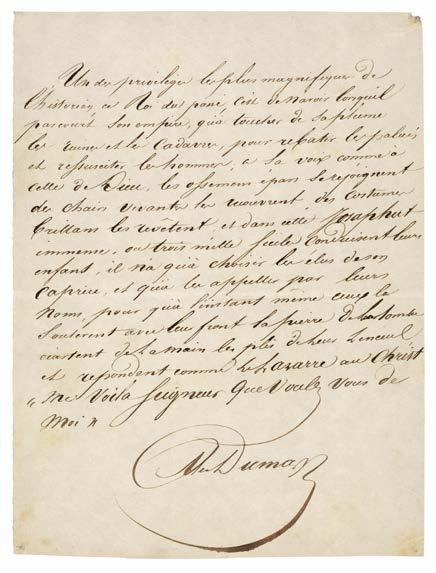 Un des privileges les plus magnifiques de
l'historien, ce Roi du passé c'est de n'avoir lorsqu'il
parcourt son empire, qu'à toucher de sa plume
les ruines et les Cadavres, pour rebatir les palais
et ressusciter les hommes, à sa voix comme à
celle de Dieu, les ossemens épars se rejoignent
des chairs vivantes les recouvrent, des costumes
brillans les revêtent, et dans cette Josaphat
immense, ou trois mille siecles conduisent leurs
enfans, il n'a qu'à choisir les élus de son
Caprice, et qu'à les appeller par leurs
Noms, pour qu'à l'instant meme ceux la
soulevent avec leur front la pierre de leur tombe
ecartent de la main les plis de leur Linceul
et repondent comme Le Lazarre au Christ
" Me Voila Seigneur Que Voulez Vous de
Moi "
Alex Dumas